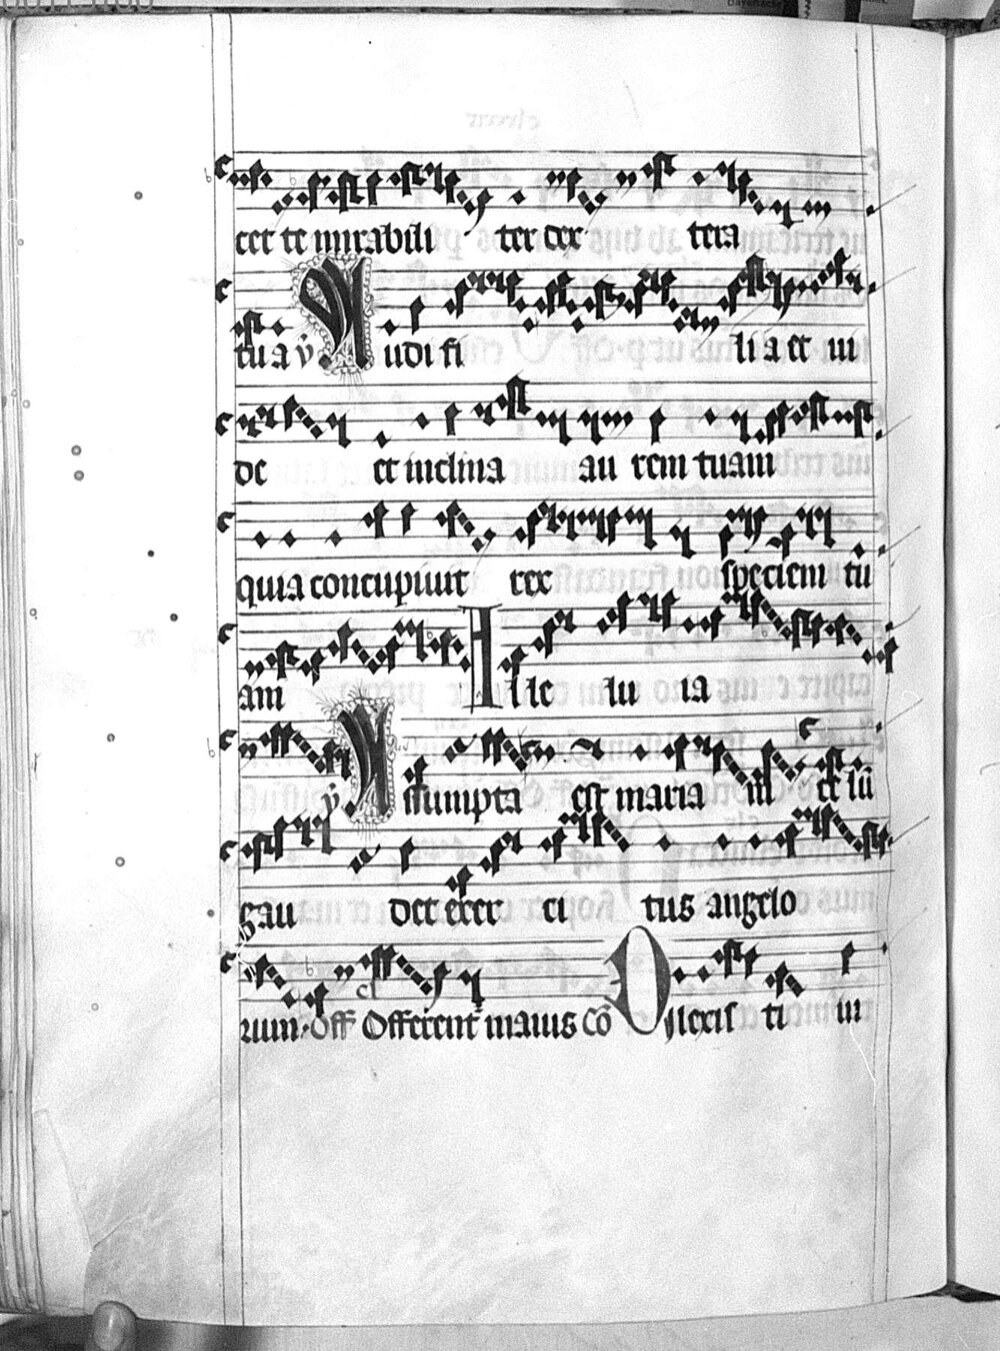 cet te mirabili ter dex tera
tu a v̄ Audi fi li a et ui
de et inclina au rem tuam
quia concupiuit rex speciem tu
am Alle lu ia
v̄ Assumpta est maria in ce lū
gau det exer ci tus angelo
rum. Off Offerent̄ maius Cō Dilexis ti iu